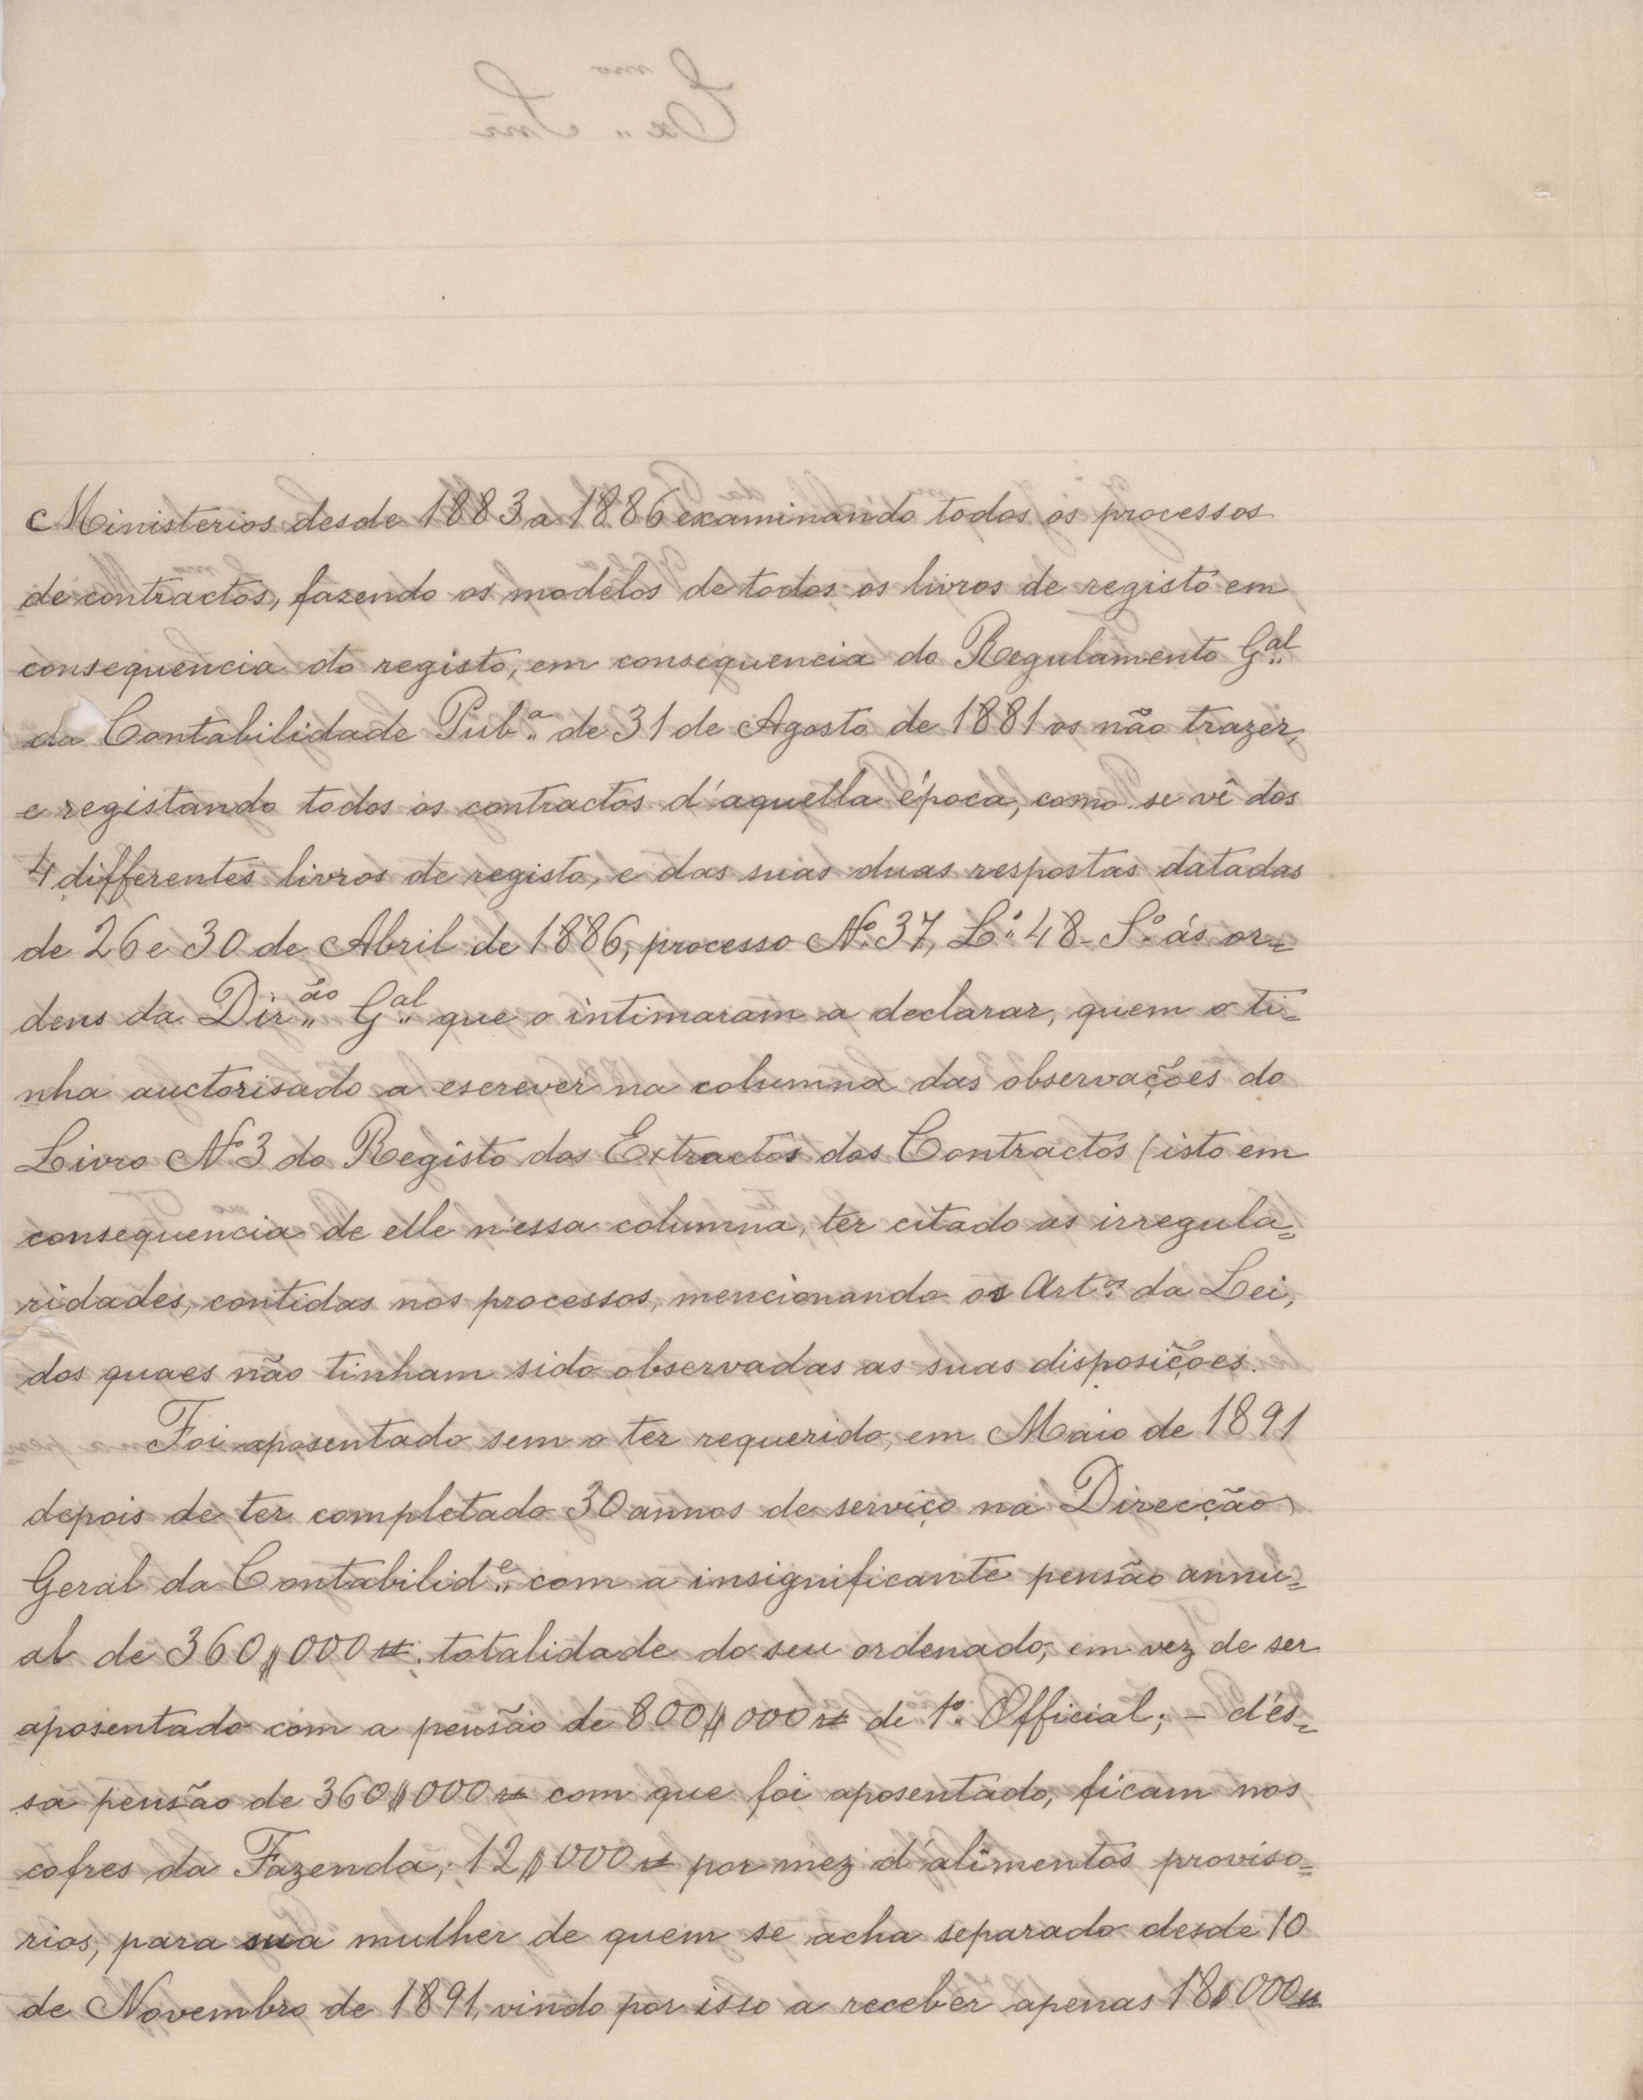 Ministerios desde 1883 a 1886 examinando todos os processos
de contractos, fazendo os modelos de todos os livros de registo em
consequencia do registo, em consequencia do Regulamento Gal
da Contabilidade Pub.a de 31 de Agosto de 1881 os não trazer,
e registando todos os contractos d'aquella época, como se vê dos
4 differentes livros de registo, e das suas duas respostas datadas
de 26 e 30 de Abril de 1886, processo Nº 37, Lº 48 - Sº ás or=
dens da Dir.ão Gal que o intimaram a declarar, quem o ti=
nha auctorisado a escrever na columna das observações do
Livro Nº 3 do Registo dos Extractos dos Contractos (isto em
consequencia de elle n'essa columna, ter citado as irregula=
ridades, contidas nos processos, mencionando os Art.os da Lei,
dos quaes não tinham sido observadas as suas disposições.
Foi aposentado sem o ter requerido, em Maio de 1891
depois de ter completado 30 annos de serviço na Direcção
Geral da Contabilid.e com a insignificante pensão annu=
al de 360$000 rs. totalidade do seu ordenado, em vez de ser
aposentado com a pensão de 800$000 rs de 1º Official; - d'és=
sa pensão de 360$000 rs com que foi aposentado, ficam nos
cofres da Fazenda, 12$000 rs por mez d'alimentos proviso=
rios, para sua mulher de quem se acha separado desde 10
de Novembro de 1891, vindo por isso a receber apenas 18$000 rs